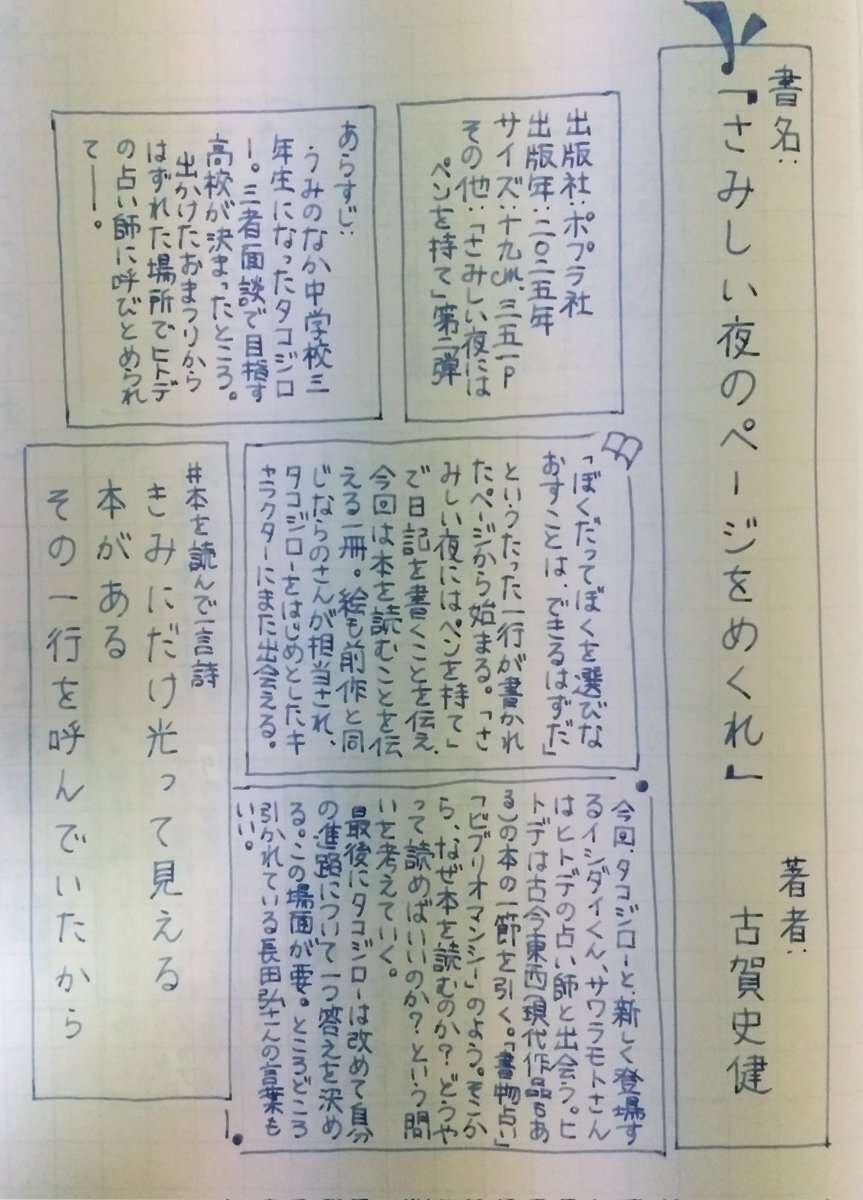 書名：
「さみしい夜のページをめくれ」
著者：
古賀史健
出版社：ポプラ社
出版年：二〇二五年
サイズ：十九㎝、三五一P
その他：「さみしい夜には
ペンを持て」第二弾
あらすじ：
うみのなか中学校三
年生になったタコジロ
ー。三者面談で目指す
高校が決まったところ。
出かけたおまつりから
はずれた場所でヒトデ
の占い師に呼びとめられ
て――。
「ぼくだってぼくを選びな
おすことは、できるはずだ」
というたった一行が書かれ
たページから始まる。「さ
みしい夜にはペンを持て」
で日記を書くことを伝え、
今回は本を読むことを伝
える一冊。絵も前作と同
じならのさんが担当され、
タコジローをはじめとしたキ
ャラクターにまた出会える。
今回、タコジローと、新しく登場す
るイシダイくん、サワラモトさん
はヒトデの占い師と出会う。ヒ
トデは古今東西（現代作品もあ
る）の本の一節を引く。「書物占い」
「ビブリオマンシー」のよう。そこか
ら、なぜ本を読むのか？どうや
って読めばいいのか？という問
いを考えていく。
最後にタコジローは改めて自分
の進路について一つ答えを決め
る。この場面が要。ところどころ
引かれている長田弘さんの言葉も
いい。
#本を読んで一言詩
きみにだけ光って見える
本がある
その一行を呼んでいたから